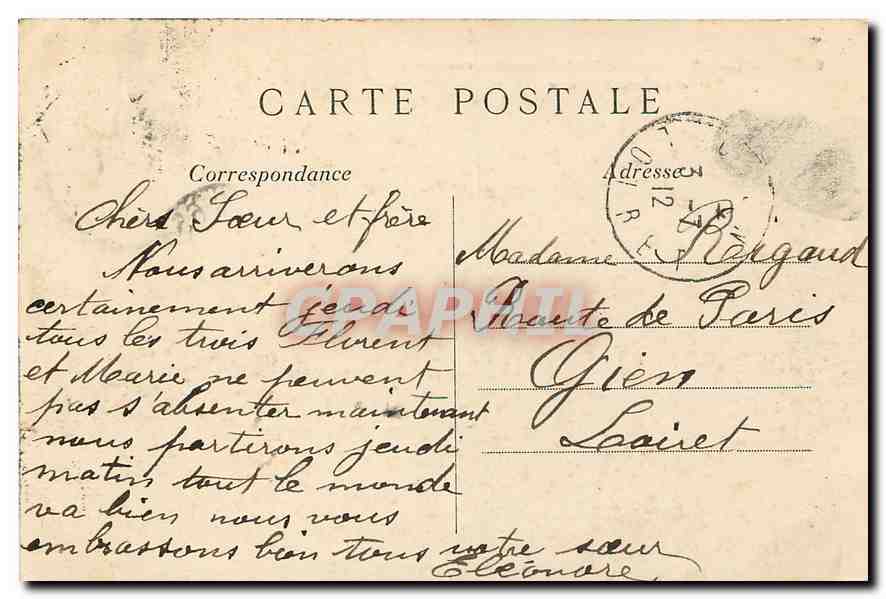 CARTE POSTALE
Correspondance
Chers Sœur et frère
Nous arriverons
certainement jeudi
tous les trois Florent
et Marie ne peuvent
pas s'absenter maintenant
nous partirons jeudi
matin tout le monde
va bien nous vous
embrassons bien tous votre sœur
Eléonore
Adresse
Madame Rigaud
Route de Paris
Gien
Loiret
LOIRET
3 -7
12
CPAPHIL